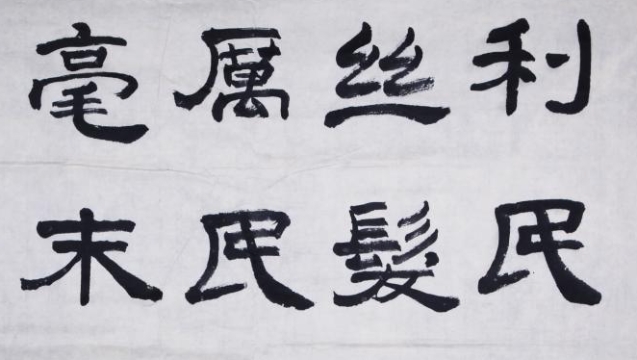 利民
丝髮
厲民
毫末